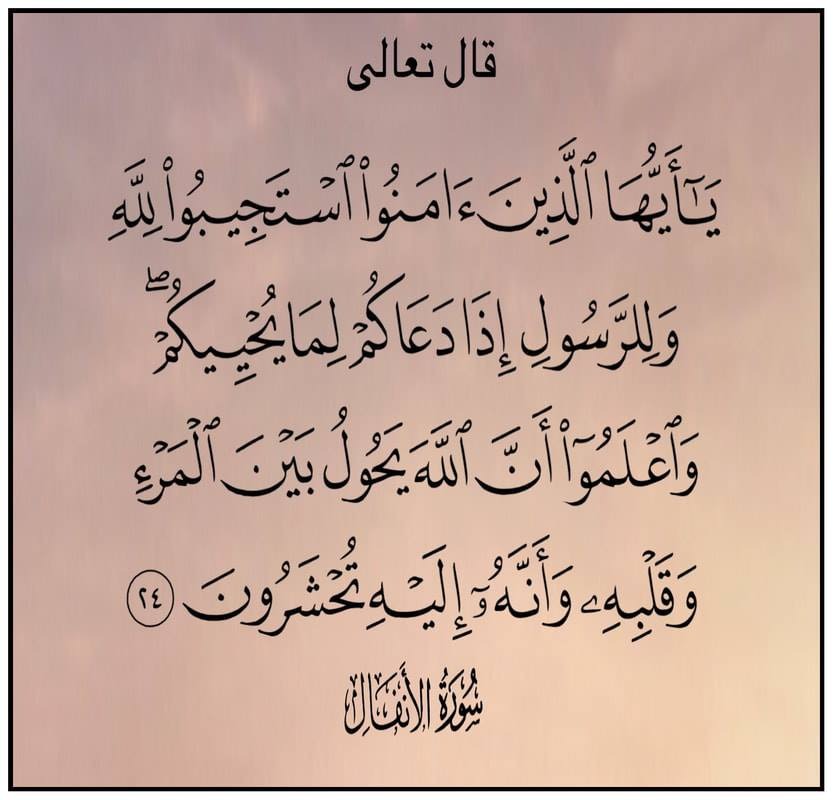 قال تعالى
يَـٰٓأَيُّهَا ٱلَّذِينَ ءَامَنُوا۟ ٱسْتَجِيبُوا۟ لِلَّهِ
وَلِلرَّسُولِ إِذَا دَعَاكُمْ لِمَا يُحْيِيكُمْ ۖ
وَٱعْلَمُوٓا۟ أَنَّ ٱللَّهَ يَحُولُ بَيْنَ ٱلْمَرْءِ
وَقَلْبِهِۦ وَأَنَّهُۥٓ إِلَيْهِ تُحْشَرُونَ ٢٤
سُورَةُ الأَنفَالِ